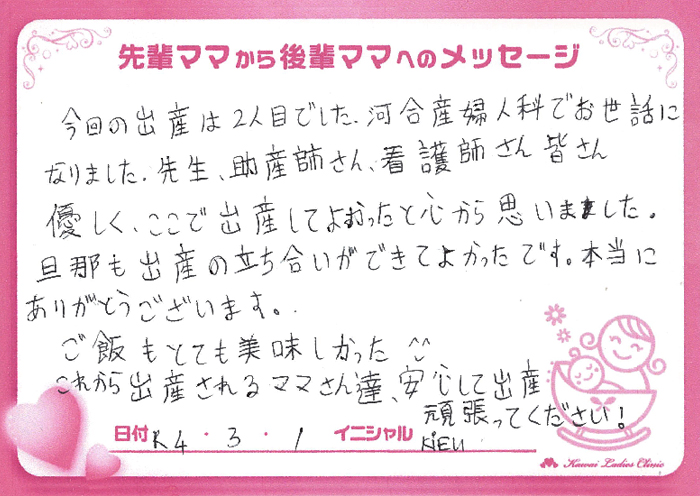 先輩ママから後輩ママへのメッセージ
今回の出産は2人目でした.河合産婦人科でお世話に
なりました.先生、助産師さん、看護師さん皆さん
優しく、ここで出産してよかったと心から思いました。
旦那も出産の立ち合いができてよかったです。本当に
ありがとうございます。
ご飯もとても美味しかった ^^
これから出産されるママさん達、安心して出産
頑張ってください!
日付 R4・3・1 イニシャル KIEU
Kawai Ladies Clinic